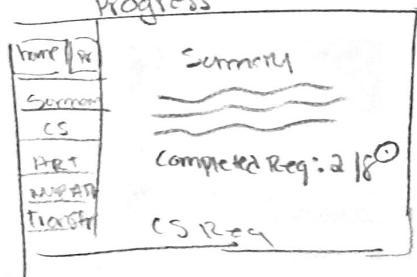 Progress
home
Summary
CS
ART
Transfr
Summary
Completed Req: 2/8
CS Req